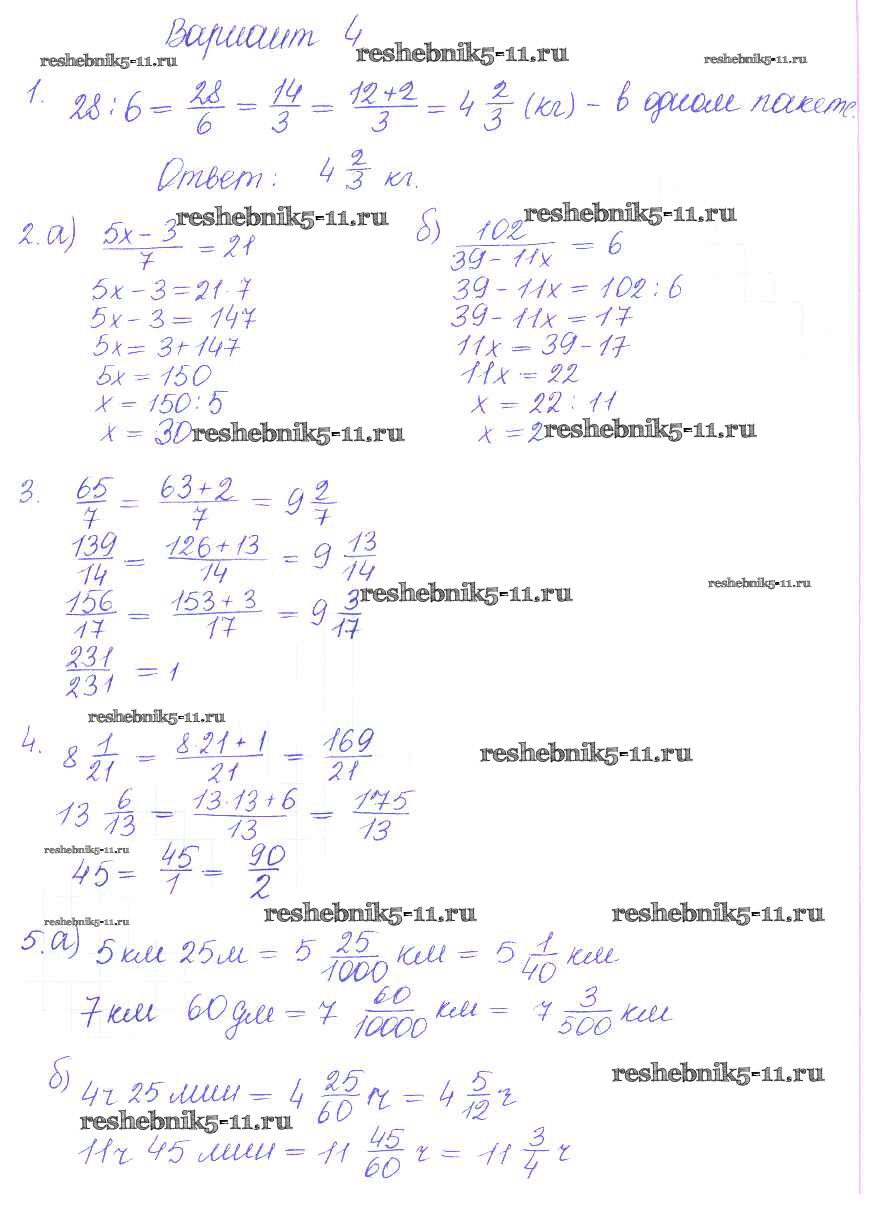 Вариант 4
reshebnik5-11.ru reshebnik5-11.ru reshebnik5-11.ru
1. 28 : 6 = 28/6 = 14/3 = 12+2/3 = 4 2/3 (кг) - в одном пакете.
Ответ: 4 2/3 кг.
reshebnik5-11.ru reshebnik5-11.ru
2. а) 5x - 3/7 = 21 б) 102/39 - 11x = 6
5x - 3 = 21·7 39 - 11x = 102 : 6
5x - 3 = 147 39 - 11x = 17
5x = 3 + 147 11x = 39 - 17
5x = 150 11x = 22
x = 150 : 5 x = 22 : 11
x = 30 reshebnik5-11.ru x = 2 reshebnik5-11.ru
3. 65/7 = 63+2/7 = 9 2/7
139/14 = 126+13/14 = 9 13/14
reshebnik5-11.ru reshebnik5-11.ru
156/17 = 153+3/17 = 9 3/17
231/231 = 1
reshebnik5-11.ru
4. 8 1/21 = 8·21+1/21 = 169/21
reshebnik5-11.ru
13 6/13 = 13·13+6/13 = 175/13
reshebnik5-11.ru
45 = 45/1 = 90/2
reshebnik5-11.ru reshebnik5-11.ru reshebnik5-11.ru
5. а) 5 км 25 м = 5 25/1000 км = 5 1/40 км
7 км 60 дм = 7 60/10000 км = 7 3/500 км
reshebnik5-11.ru
б) 4 ч 25 мин = 4 25/60 ч = 4 5/12 ч
reshebnik5-11.ru
11 ч 45 мин = 11 45/60 ч = 11 3/4 ч